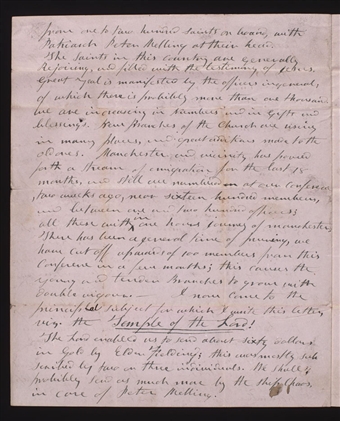 from one to two hundred saints on board, with
Patriarch Peter Melling at their head.
The Saints in this Country are generally
Rejoicing, and filled with the testimony of Jesus.
Great zeal is manifested by the officers in general,
of which there is probibly more than one thousand
we are increasing in numbers and in Gifts and
blessings. New Branches of the Church are rising
in many places, and great additions made to the
old ones. Manchester and vicinity has poured
forth a stream of emigration for the last 18
months, and still we numbered at our conference
two weeks ago, near sixteen hundred members,
and between one and two hundred officers;
all these within one hours journey of manchester
There has been a general time of pruning, we
have cut off upwards of 100 members from this
Conference in a few months; this causes the
young and tender Branches to grow with
double vigour. — I now come to the
principal subject for which I write this letter,
viz: the Temple of the Lord!
The Lord enabled us to send about sixty dollars
in Gold by Elder Fielding; this was mostly sub
scribed by two or three individuals. We shall
probibly send as much more by the ship
in care of Peter Melling.